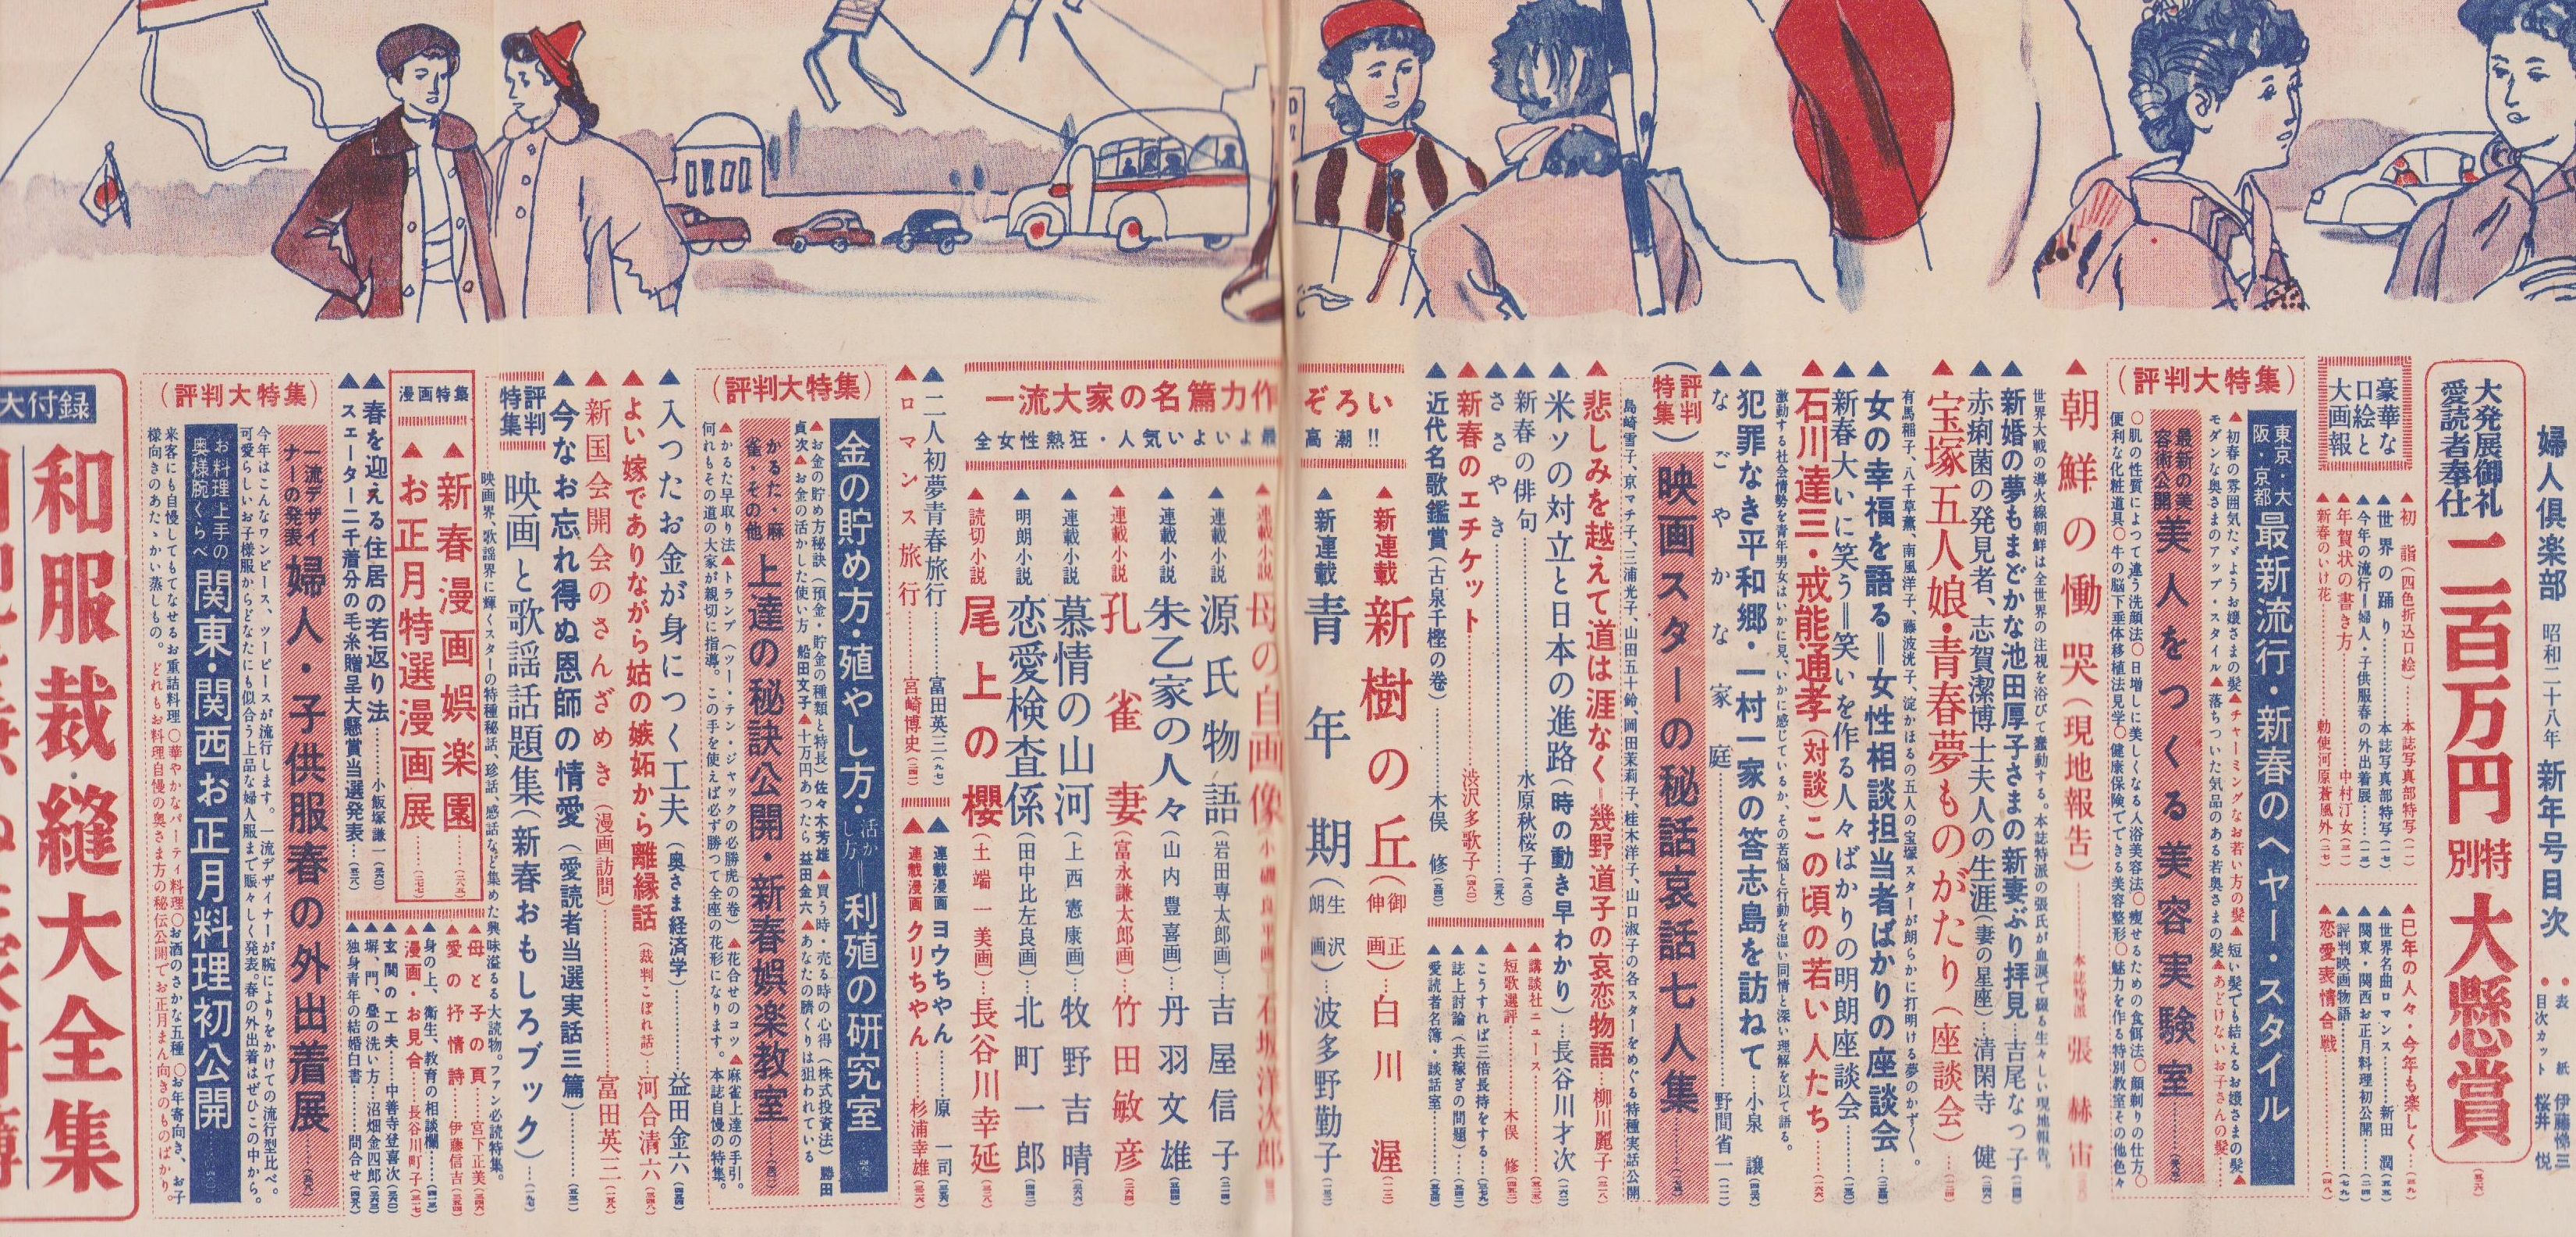 婦人倶楽部 昭和二十八年 新年号目次
表紙 伊藤悌三
目次カット 桜井悦
大発展御礼
愛読者奉仕
二百万円 特別 大懸賞
豪華な
口絵と
大画報
初詣(四色折込口絵)…本誌写真部特写
世界の踊り…本誌写真部特写
今年の流行―婦人・子供服春の外出着展
年賀状の書き方…中村汀女
新春のいけ花…勅使河原蒼風外
巳年の人々・今年も楽しく
世界名曲ロマンス…新田潤
関東・関西お正月料理初公開
評判映画物語
恋愛表情合戦
(評判大特集)
東京・大阪・京都 最新流行・新春のヘヤー・スタイル
初春の雰囲気たゞようお嬢さまの髪▲チャーミングなお若い方の髪▲短い髪でも結えるお嬢さまの髪▲
モダンな奥さまのアップ・スタイル▲落ちついた気品のある若奥さまの髪▲あどけないお子さんの髪
最新の美容術公開 美人をつくる美容実験室
○肌の性質によつて違う洗顔法○日増しに美しくなる入浴美容法○痩せるための食餌法○顔剃りの仕方○
便利な化粧道具○牛の脳下垂体移植法見学○健康保険でできる美容整形○魅力を作る特別教室その他色々
朝鮮の慟哭(現地報告)…本誌特派 張赫宙
世界大戦の導火線朝鮮は全世界の注視を浴びて蠢動する。本誌特派の張氏が血涙で綴る生々しい現地報告。
新婚の夢もまどかな池田厚子さまの新妻ぶり拝見…吉尾なつ子
赤痢菌の発見者、志賀潔博士夫人の生涯(妻の星座)…清閑寺健
宝塚五人娘・青春夢ものがたり(座談会)
有馬稲子、八千草薫、南風洋子、藤波洸子、淀かほるの五人の宝塚スターが朗らかに打明ける夢のかずゝゝ。
女の幸福を語る=女性相談担当者ばかりの座談会
新春大いに笑う=笑いを作る人々ばかりの明朗座談会
石川達三・戒能通孝(対談)この頃の若い人たち
激動する社会情勢を青年男女はいかに見、いかに感じているか、その苦悩と行動を温い同情と深い理解を以て語る。
犯罪なき平和郷・一村一家の答志島を訪ねて…小泉譲
なごやかな家庭…野間省一
(評判特集) 映画スターの秘話哀話七人集
島崎雪子、京マチ子、三浦光子、山田五十鈴、岡田茉莉子、桂木洋子、山口淑子の各スターをめぐる特種実話公開
悲しみを越えて道は涯なく=幾野道子の哀恋物語…柳川麗子
米ソの対立と日本の進路(時の動き早わかり)…長谷川才次
新春の俳句…水原秋桜子
ささやき
新春のエチケット…渋沢多歌子
近代名歌鑑賞(古泉千樫の巻)…木俣修
講談社ニュース
短歌選評…木俣修
こうすれば三倍長持をする
誌上討論(共稼ぎの問題)
愛読者名簿・談話室
一流大家の名篇力作ぞろい
全女性熱狂・人気いよいよ最高潮!!
新連載 新樹の丘(御正伸画)…白川渥
新連載 青年期(生沢朗画)…波多野勤子
連載小説 母の自画像(小磯良平画)…石坂洋次郎
連載小説 源氏物語(岩田専太郎画)…吉屋信子
連載小説 朱乙家の人々(山内豊喜画)…丹羽文雄
連載小説 孔雀妻(富永謙太郎画)…竹田敏彦
連載小説 慕情の山河(上西憲康画)…牧野吉晴
明朗小説 恋愛検査係(田中比左良画)…北町一郎
読切小説 尾上の櫻(土端一美画)…長谷川幸延
二人初夢青春旅行…富田英三
ロマンス旅行…宮崎博史
連載漫画 ヨウちゃん…原一司
連載漫画 クリちゃん…杉浦幸雄
(評判大特集)
金の貯め方・殖やし方・活かし方=利殖の研究室
お金の貯め方秘訣(預金・貯金の種類と特長)佐々木芳雄▲買う時・売る時の心得(株式投資法)勝田
貞次▲お金の活かした使い方 船田文子▲十万円あつたら 益田金六▲あなたの臍くりは狙われている
かるた・麻雀・その他 上達の秘訣公開・新春娯楽教室
かるた早取り法▲トランプ(ツー・テン・ジャックの必勝虎の巻)▲花合せのコツ▲麻雀上達の手引。
何れもその道の大家が親切に指導。この手を使えば必ず勝つて全座の花形になります。本誌自慢の特集。
入つたお金が身につく工夫(奥さま経済学)…益田金六
よい嫁でありながら姑の嫉妬から離縁話(裁判こぼれ話)…河合清六
新国会開会のさんざめき(漫画訪問)…富田英三
今なお忘れ得ぬ恩師の情愛(愛読者当選実話三篇)
評判特集 映画と歌謡話題集(新春おもしろブック)
映画界、歌謡界に輝くスターの特種秘話、珍話、感話など集めた興味溢るる大読物。ファン必読特集。
漫画特集
新春漫画娯楽園
お正月特選漫画展
母と子の頁…宮下正美
愛の抒情詩…伊藤信吉
漫画・お見合…長谷川町子
身の上、衛生、教育の相談欄
玄関の工夫…中善寺登喜次
塀、門、畳の洗い方…沼畑金四郎
独身青年の結婚白書…問合せ
春を迎える住居の若返り法…小飯塚謙一
スエーター二千着分の毛糸贈呈大懸賞当選発表
(評判大特集)
一流デザイナーの発表 婦人・子供服春の外出着展
今年はこんなワンピース、ツーピースが流行します。一流デザイナーが腕によりをかけての流行型比べ。
可愛らしいお子様服からどなたにも似合う上品な婦人服まで賑々しく発表。春の外出着はぜひこの中から。
お料理上手の奥様腕くらべ 関東・関西お正月料理初公開
来客にも自慢してもてなせるお重詰料理○華やかなパーティ料理○お酒のさかな五種○お年寄向き、お子
様向きのあたゝかい蒸しもの。どれもお料理自慢の奥さま方の秘伝公開でお正月まん向きのものばかり。
大付録
和服裁縫大全集